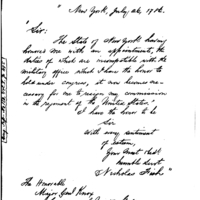 "New York, July 26, 1786.
"Sir:
The State of New York having
honored me with an appointment, the
duties of which are incompatible with the
military office which I have the honor to
hold under Congress, it now becomes ne-
cessary for me to resign my commission
in the regiment of the United States.
I have the honor to be
Sir
with every sentiment
of esteem,
Your most obdt.
humble Servt
Nicholas Fish
The Honorable
Major Genl Knox